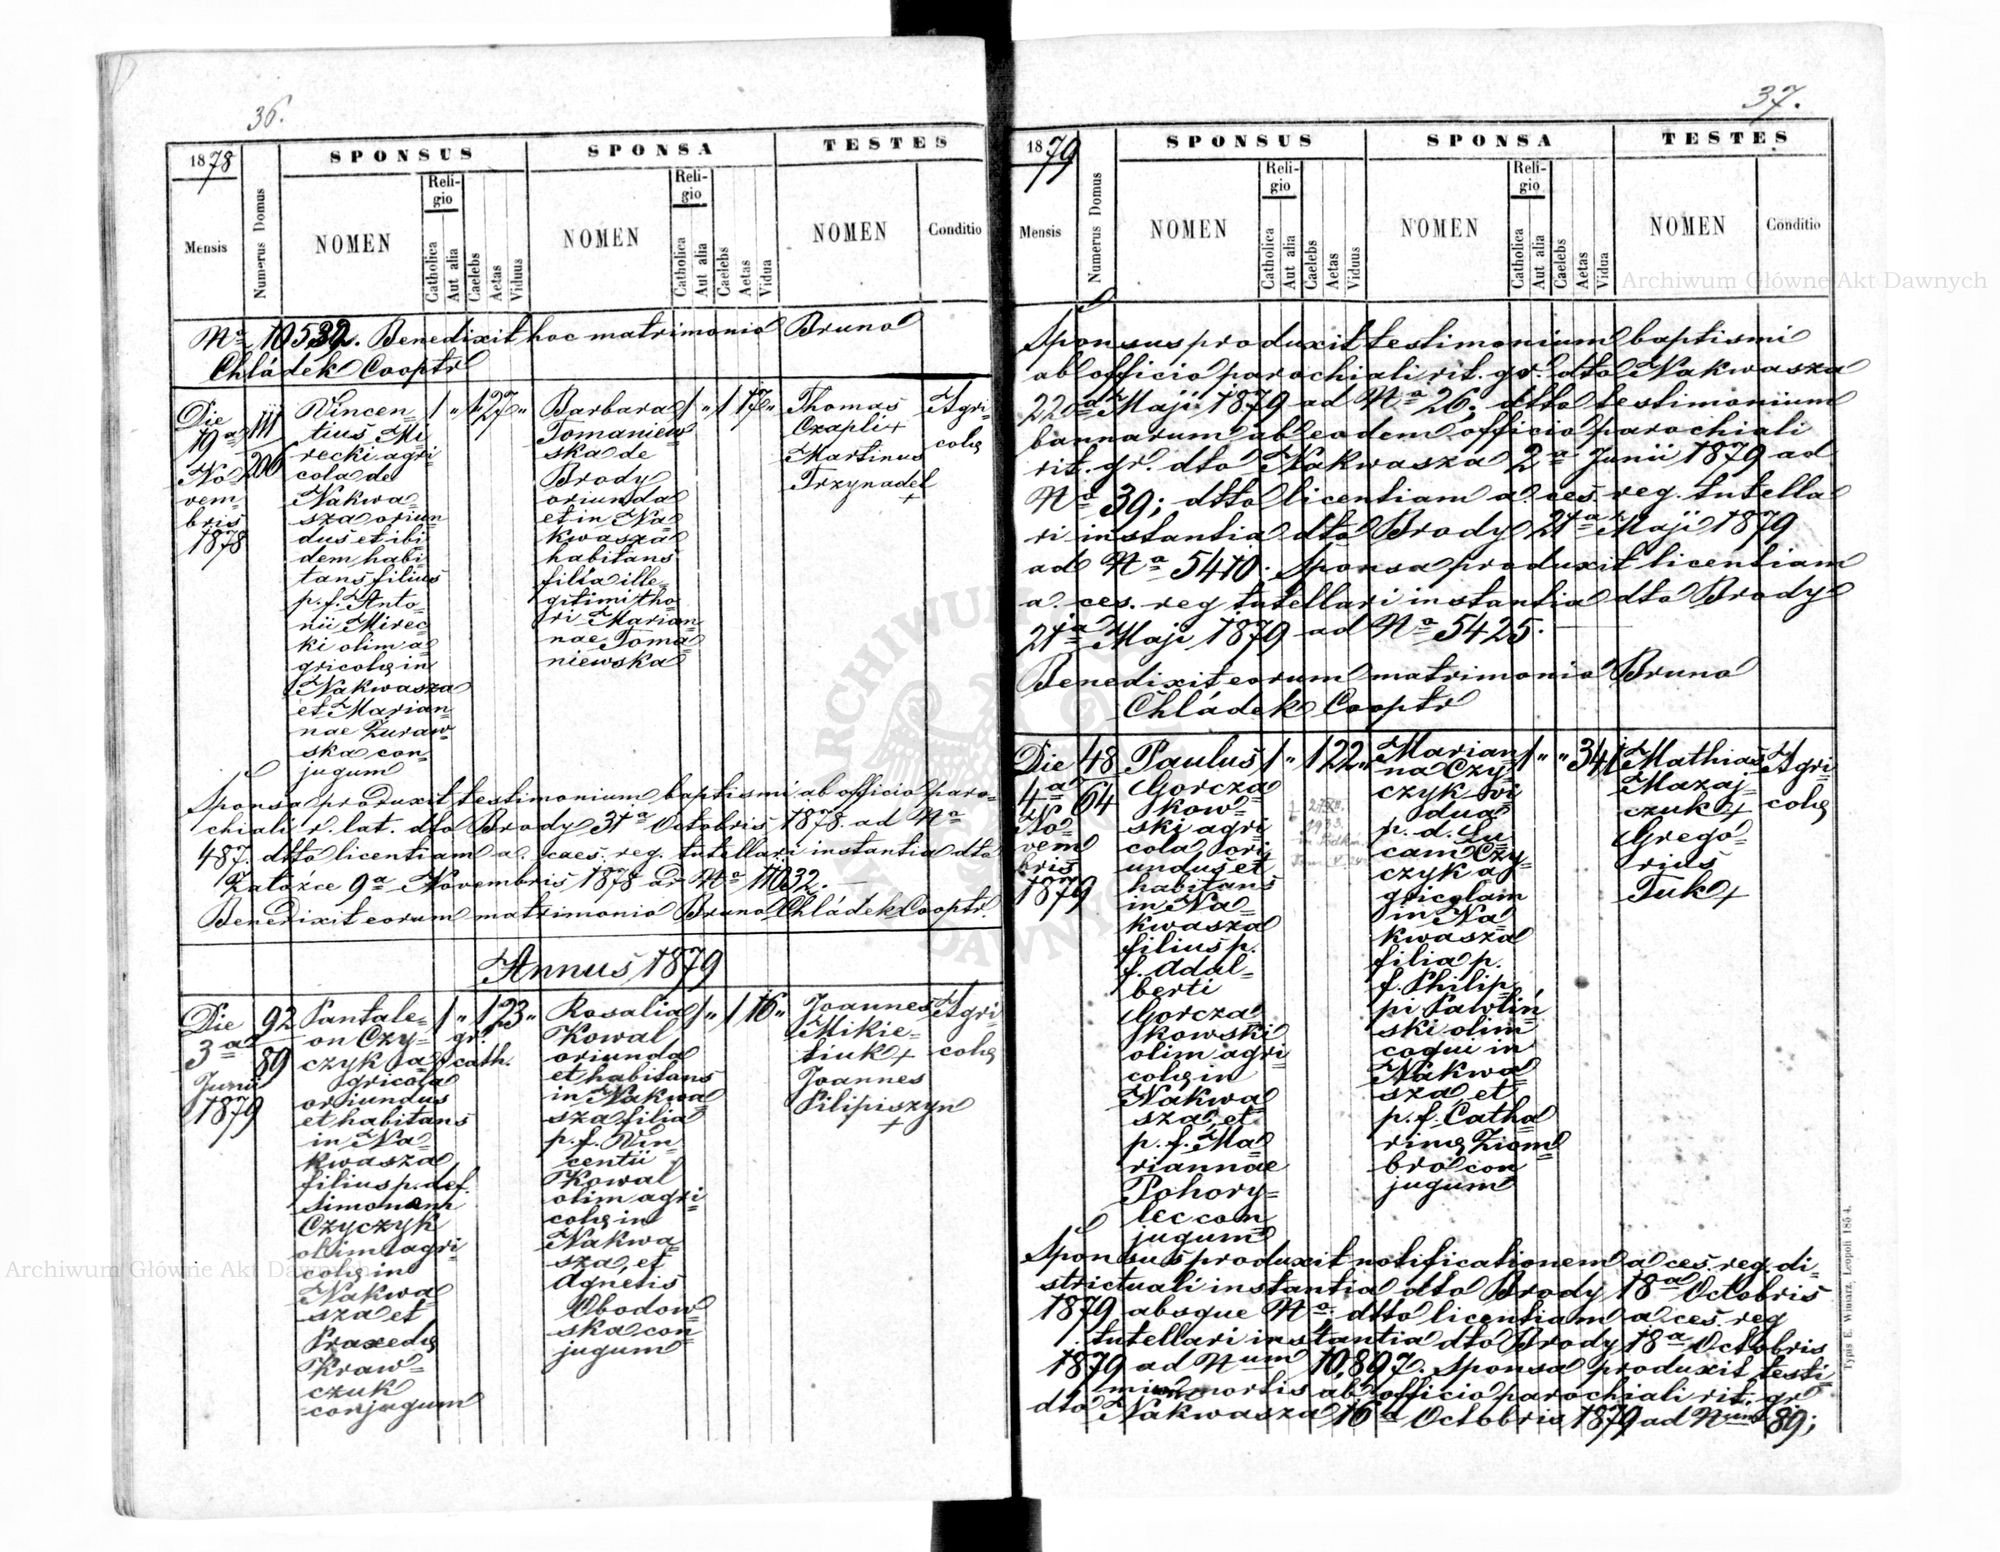 36.
1878
Mensis
Numerus Domus
SPONSUS
NOMEN
Religio
Catholica
Aut alia
Caelebs
Aetas
Viduus
SPONSA
NOMEN
Religio
Catholica
Aut alia
Caelebs
Aetas
Vidua
TESTES
NOMEN
Conditio
Nº 10532. Benedixit hoc matrimonio Bruno
Chládek Cooptr
Die
19ª
No
vem=
bris
1878
111
206
Vincen
tius Mi
recki agri=
cola de
Nakwa=
sza oriun=
dus et ibi
dem habi=
tans filius
p. f. Anto=
nii Mirec=
ki olim a=
gricolę in
Nakwasza
et Marian=
nae Żuraw=
ska con=
jugum
1 " 1 27 "
Barbara
Tomaniew
ska de
Brody
oriunda
et in Na=
kwasza
habitans
filia ille=
gitimi tho=
ri Marian=
nae Toma=
niewska
1 " 1 17 "
Thomas
Czapli +
Martinus
Trzynadel
+
Agri=
colę
Sponsa produxit testimonium baptismi ab officio paro=
chiali r. lat. dto Brody 31ª Octobris 1878 ad Nº
487. dtto licentiam a. caes. reg. tutellari instantia dto
Załoźce 9ª Novembris 1878 ad Nº 11032.
Benedixit eorum matrimonio Bruno Chládek Cooptr.
Annus 1879
Die
3ª
Junii
1879
92
89
Pantale=
on Czy=
czyk
agricola
oriundus
et habitans
in Na=
kwasza
filius p. def.
Simonem
Czyczyk
olim agri=
colę in
Nakwa=
sza et
Praxedę
Kraw=
czuk
conjugum
1 " 1 23 "
gr.
cath.
Rosalia
Kowal
oriunda
et habitans
in Nakwa=
sza filia
p. f. Vin=
centii
Kowal
olim agri=
colę in
Nakwa=
sza, et
Agnetis
Obodow=
ska con=
jugum
1 " 1 16 "
Joannes
Mikie=
tiuk +
Joannes
Pilipiszyn
+
Agri=
colę
37.
1879
Mensis
Numerus Domus
SPONSUS
NOMEN
Religio
Catholica
Aut alia
Caelebs
Aetas
Viduus
SPONSA
NOMEN
Religio
Catholica
Aut alia
Caelebs
Aetas
Vidua
TESTES
NOMEN
Conditio
Sponsus produxit testimonium baptismi
ab officio parochiali rit. gr. dto Nakwasza
22ª Maji 1879 ad Nº 26; dtto testimonium
bannarum ab eodem officio parochiali
rit. gr. dto Nakwasza 2ª Junii 1879 ad
Nº 39; dtto licentiam a ces. reg. tutella=
ri instantia dto Brody 21ª Maji 1879
ad Nº 5410. Sponsa produxit licentiam
a. ces. reg tutellari instantia dto Brody
21ª Maji 1879 ad Nº 5425.
Benedixit eorum matrimonio Bruno
Chládek Cooptr
Die
4ª
No=
vem
bris
1879
48
64
Paulus
Gorcza
kow=
ski agri
cola ori
undus et
habitans
in Na=
kwasza
filius p.
f. Adal=
berti
Gorcza
kowski
olim agri
colę in
Nakwa
sza, et
p. f. Ma=
riannae
Pohory=
lec con
jugum
1 " 1 22 "
1933.
Marian=
na Czy=
czyk vi
dua
p. d. Lu
cam Czy=
czyk ag=
gricolam
in Na
kwasza
filia p.
f. Philip=
pi Pawliń
ski olim
coqui in
Nakwa=
sza, et
p. f. Catha
rinę Ziem=
bro con
jugum
1 " " 34 1
Mathias
Mazaj=
czuk +
Grego=
rius
Tuk +
Agri=
colę
Sponsus produxit notificationem a ces. reg. di=
strictuali instantia dto Brody 18ª Octobris
1879 absque Nº. dtto licentiam a ces. reg
tutellari instantia dto Brody 18ª Octobris
1879 ad Num 10,897. Sponsa produxit testi=
mortis ab officio parochiali rit. gr
dto Nakwasza 16ª Octobris 1879 ad Num 89;
Typis E. Winiarz, Leopoli 1854.
Archiwum Główne Akt Dawnych
Archiwum Główne Akt Dawnych